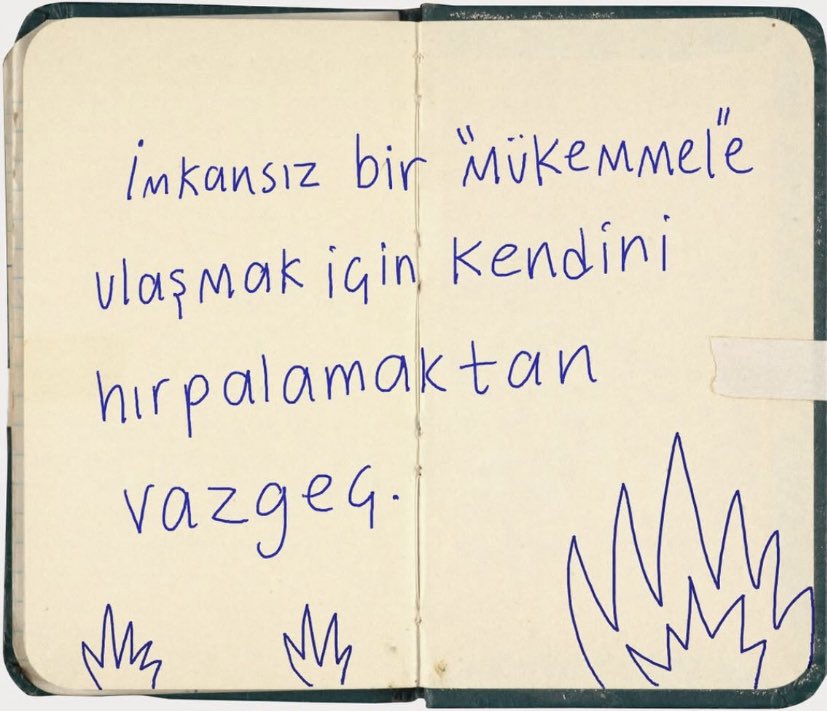 İmkansız bir "mükemmel"e
ulaşmak için kendini
hırpalamaktan
vazgeç.